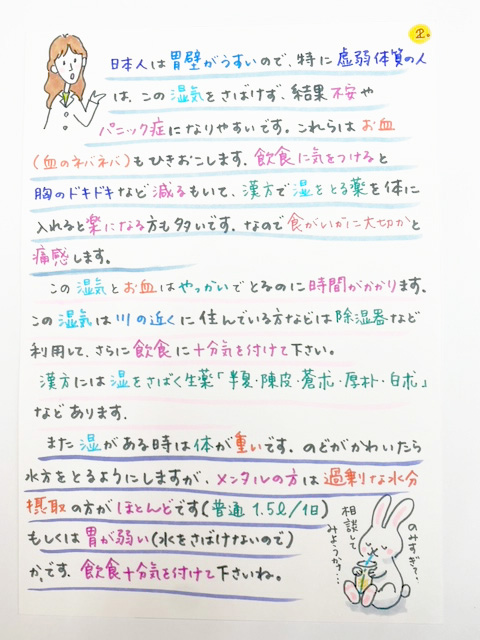 2.
日本人は胃壁がうすいので、特に虚弱体質の人
は、この湿気をさばけず、結果不安や
パニック症になりやすいです。これらはお血
(血のネバネバ)もひきおこします。飲食に気をつけると
胸のドキドキなど減るもいて、漢方で湿をとる薬を体に
入れると楽になる方も多いです。なので食がいかに大切かと
痛感します。
この湿気とお血はやっかいでとるのに時間がかかります。
この湿気は川の近くに住んでいる方などは除湿器など
利用して、さらに飲食に十分気を付けて下さい。
漢方には湿をさばく生薬「半夏・陳皮・蒼朮・厚朴・白朮」
などあります.
また湿がある時は体が重いです。のどがかわいたら
水方をとるようにしますが、メンタルの方は過剰な水分
摂取の方がほとんどです(普通1.5ℓ/1日)
もしくは胃が弱い(水をさばけないので)
かです. 飲食十分気を付けて下さいね。
のみすぎて、
相談して
みようかナ…